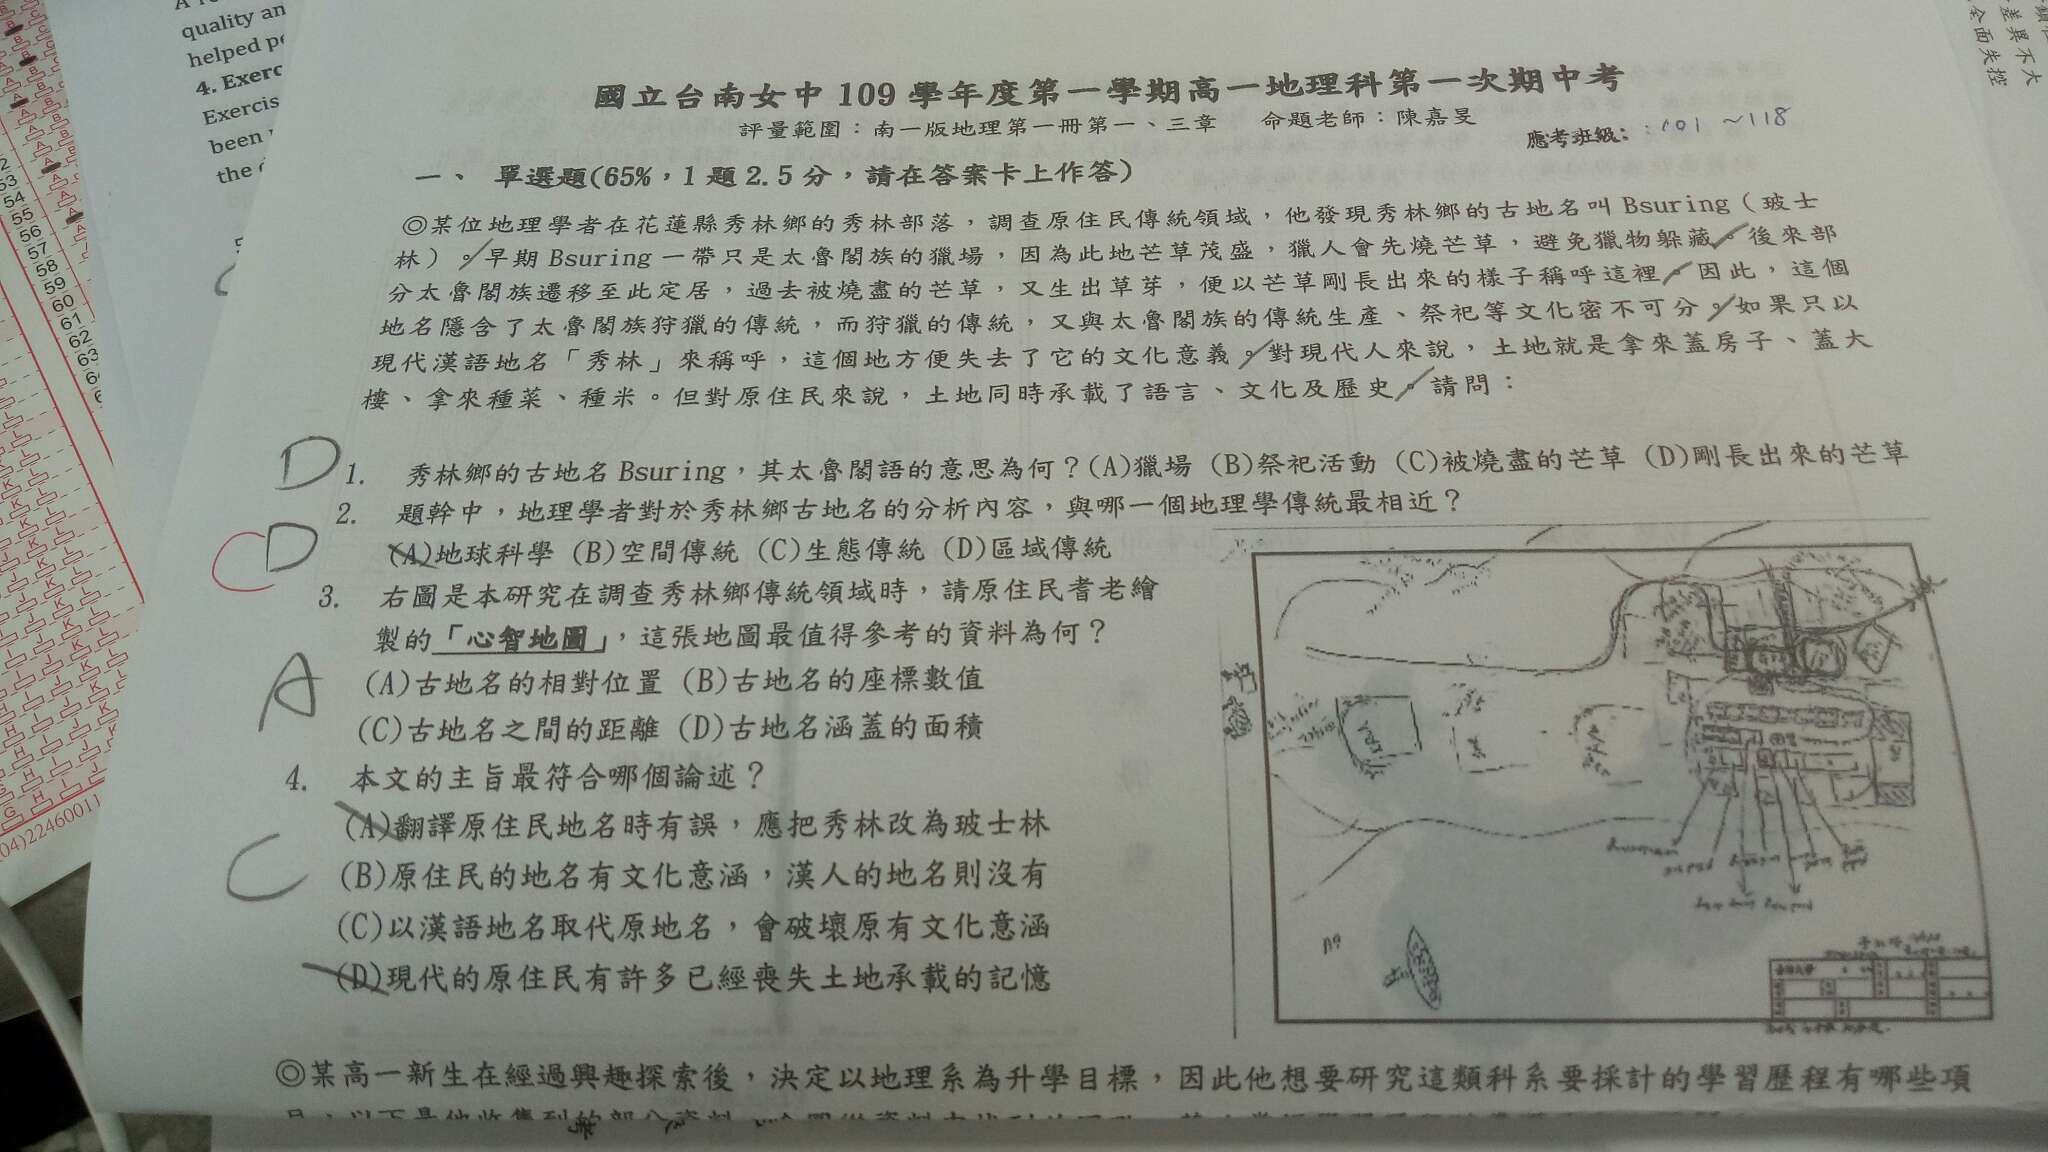 quality an
helped pe
4. Exerc
Exercis
been
the
國立台南女中 109 學年度第一學期高一地理科第一次期中考
評量範圍：南一版地理第一冊第一、三章 命題老師：陳嘉旻 應考班級：101 ~118
一、 單選題(65%，1 題 2.5 分，請在答案卡上作答)
◎某位地理學者在花蓮縣秀林鄉的秀林部落，調查原住民傳統領域，他發現秀林鄉的古地名叫 Bsuring（玻士
林）。早期 Bsuring 一帶只是太魯閣族的獵場，因為此地芒草茂盛，獵人會先燒芒草，避免獵物躲藏。後來部
分太魯閣族遷移至此定居，過去被燒盡的芒草，又生出草芽，便以芒草剛長出來的樣子稱呼這裡。因此，這個
地名隱含了太魯閣族狩獵的傳統，而狩獵的傳統，又與太魯閣族的傳統生產、祭祀等文化密不可分。如果只以
現代漢語地名「秀林」來稱呼，這個地方便失去了它的文化意義。對現代人來說，土地就是拿來蓋房子、蓋大
樓、拿來種菜、種米。但對原住民來說，土地同時承載了語言、文化及歷史。請問：
D 1. 秀林鄉的古地名 Bsuring，其太魯閣語的意思為何？(A)獵場 (B)祭祀活動 (C)被燒盡的芒草 (D)剛長出來的芒草
2. 題幹中，地理學者對於秀林鄉古地名的分析內容，與哪一個地理學傳統最相近？
C D (A)地球科學 (B)空間傳統 (C)生態傳統 (D)區域傳統
3. 右圖是本研究在調查秀林鄉傳統領域時，請原住民耆老繪
製的「心智地圖」，這張地圖最值得參考的資料為何？
A (A)古地名的相對位置 (B)古地名的座標數值
(C)古地名之間的距離 (D)古地名涵蓋的面積
4. 本文的主旨最符合哪個論述？
(A)翻譯原住民地名時有誤，應把秀林改為玻士林
C (B)原住民的地名有文化意涵，漢人的地名則沒有
(C)以漢語地名取代原地名，會破壞原有文化意涵
(D)現代的原住民有許多已經喪失土地承載的記憶
◎某高一新生在經過興趣探索後，決定以地理系為升學目標，因此他想要研究這類科系要採計的學習歷程有哪些項
差異不大
全面失控
53
54
55
56
57
58
59
60
61
62
63
04)22460011